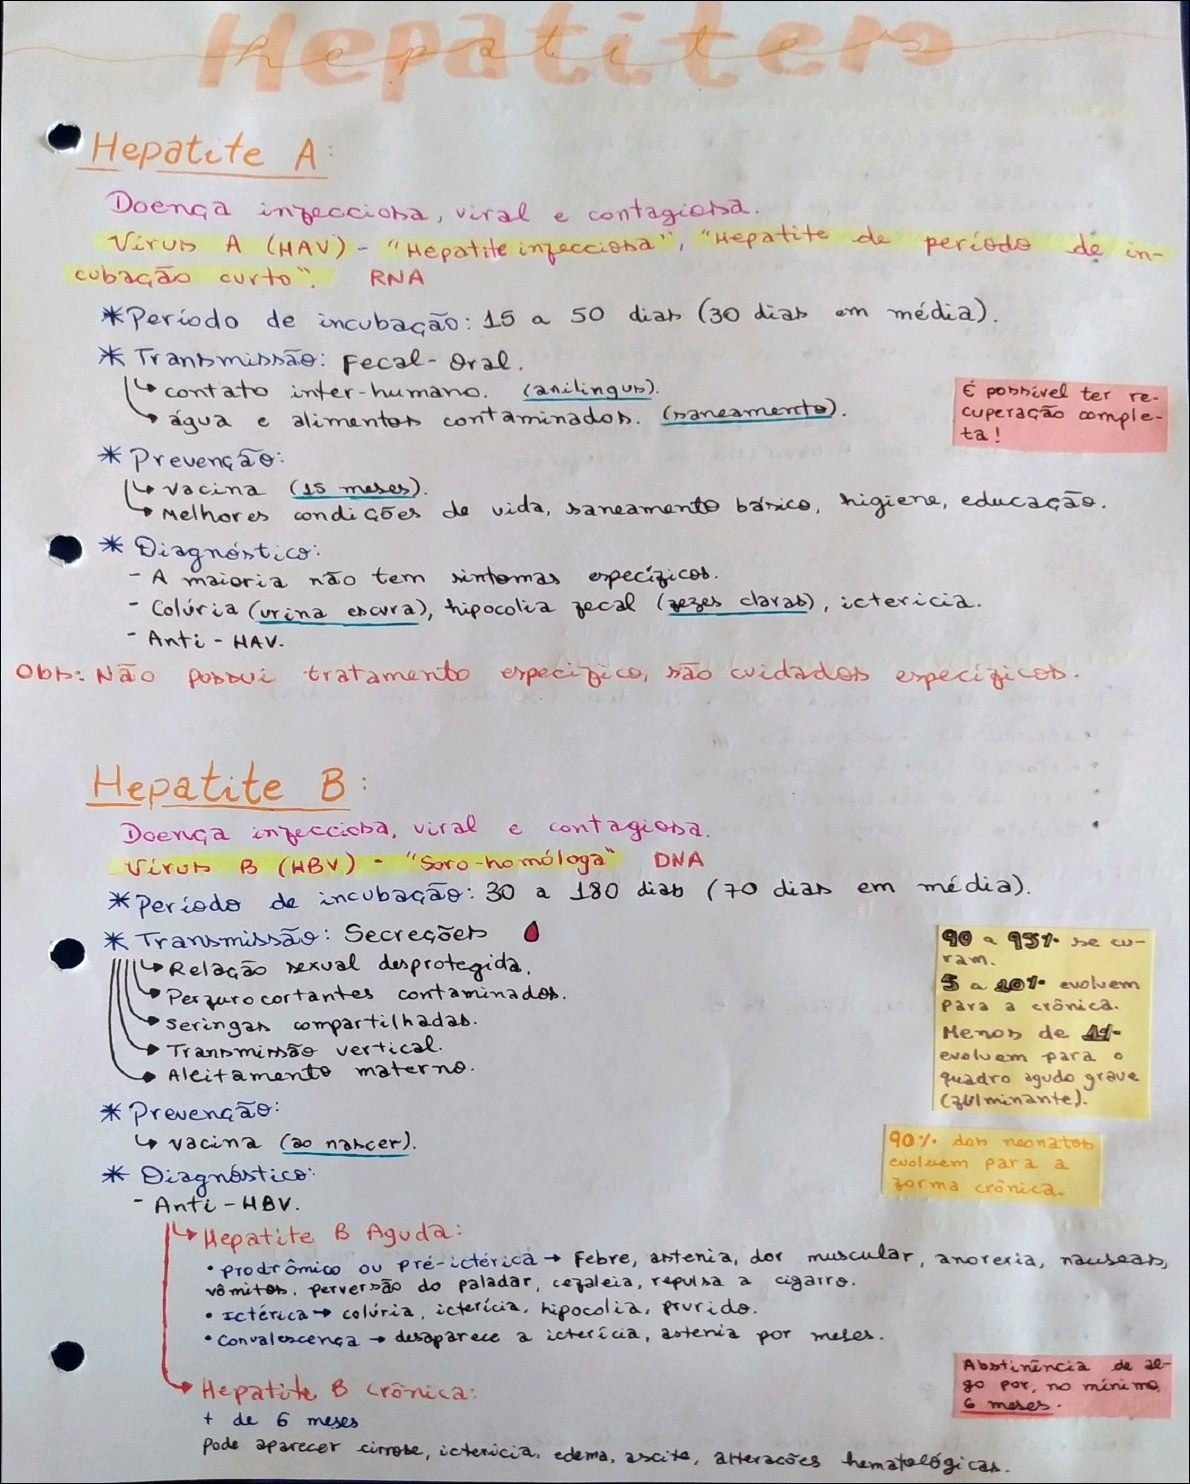 Hepatites
hepatites
Hepatite A:
Doença infecciosa, viral e contagiosa.
Vírus A (HAV) - "Hepatite infecciosa", "Hepatite de período de in-
cubação curto". RNA
*Período de incubação: 15 a 50 dias (30 dias em média).
* Transmissão: Fecal-Oral.
↳ contato inter-humano. (anilingus).
↳ água e alimentos contaminados. (saneamento).
É possível ter re-
cuperação comple-
ta!
* Prevenção:
↳ vacina (15 meses).
↳ Melhores condições de vida, saneamento básico, higiene, educação.
* Diagnóstico:
- A maioria não tem sintomas específicos.
- Colúria (urina escura), hipocolia fecal (fezes claras), ictericia.
- Anti-HAV.
Obs: Não possui tratamento específico, são cuidados específicos.
Hepatite B:
Doença infecciosa, viral e contagiosa.
Vírus B (HBV) - "Soro-homóloga" DNA
*Período de incubação: 30 a 180 dias (70 dias em média).
* Transmissão: Secreções
↳ Relação sexual desprotegida.
↳ Perfurocortantes contaminados.
↳ Seringas compartilhadas.
↳ Transmissão vertical.
↳ Aleitamento materno.
90 a 95% se cu-
ram.
5 a 10% evoluem
para a crônica.
Menos de 1%
evoluem para o
quadro agudo grave
(fulminante).
* Prevenção:
↳ vacina (ao nascer).
90% dos neonatos
evoluem para a
forma crônica.
* Diagnóstico:
- Anti-HBV.
↳ Hepatite B Aguda:
• prodrômico ou pré-ictérica → Febre, astenia, dor muscular, anorexia, nauseas,
vômitos, perversão do paladar, cefaleia, repulsa a cigarro.
• Ictérica → colúria, icterícia, hipocolia, prurido.
• Convalescença → desaparece a icterícia, astenia por meses.
↳ Hepatite B Crônica:
+ de 6 meses
Pode aparecer cirrose, ictericia, edema, ascite, alterações hematológicas.
Abstinência de al-
go por, no mínimo,
6 meses.